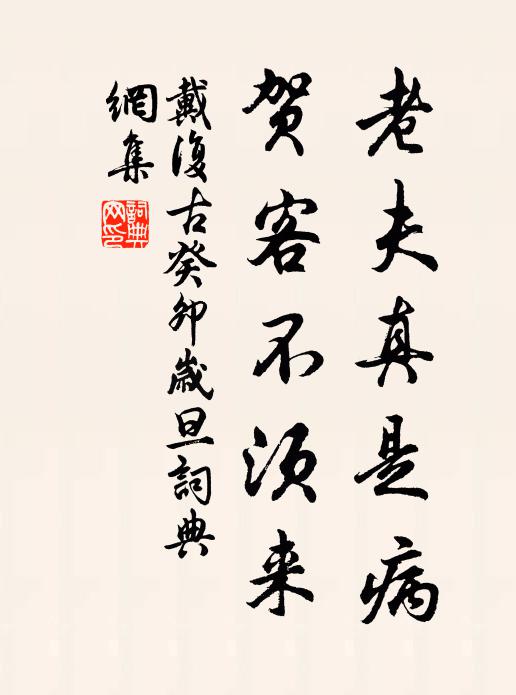 老夫真是病
贺客不须来
戴復古癸卯歲旦詞典
網集
詞典網印